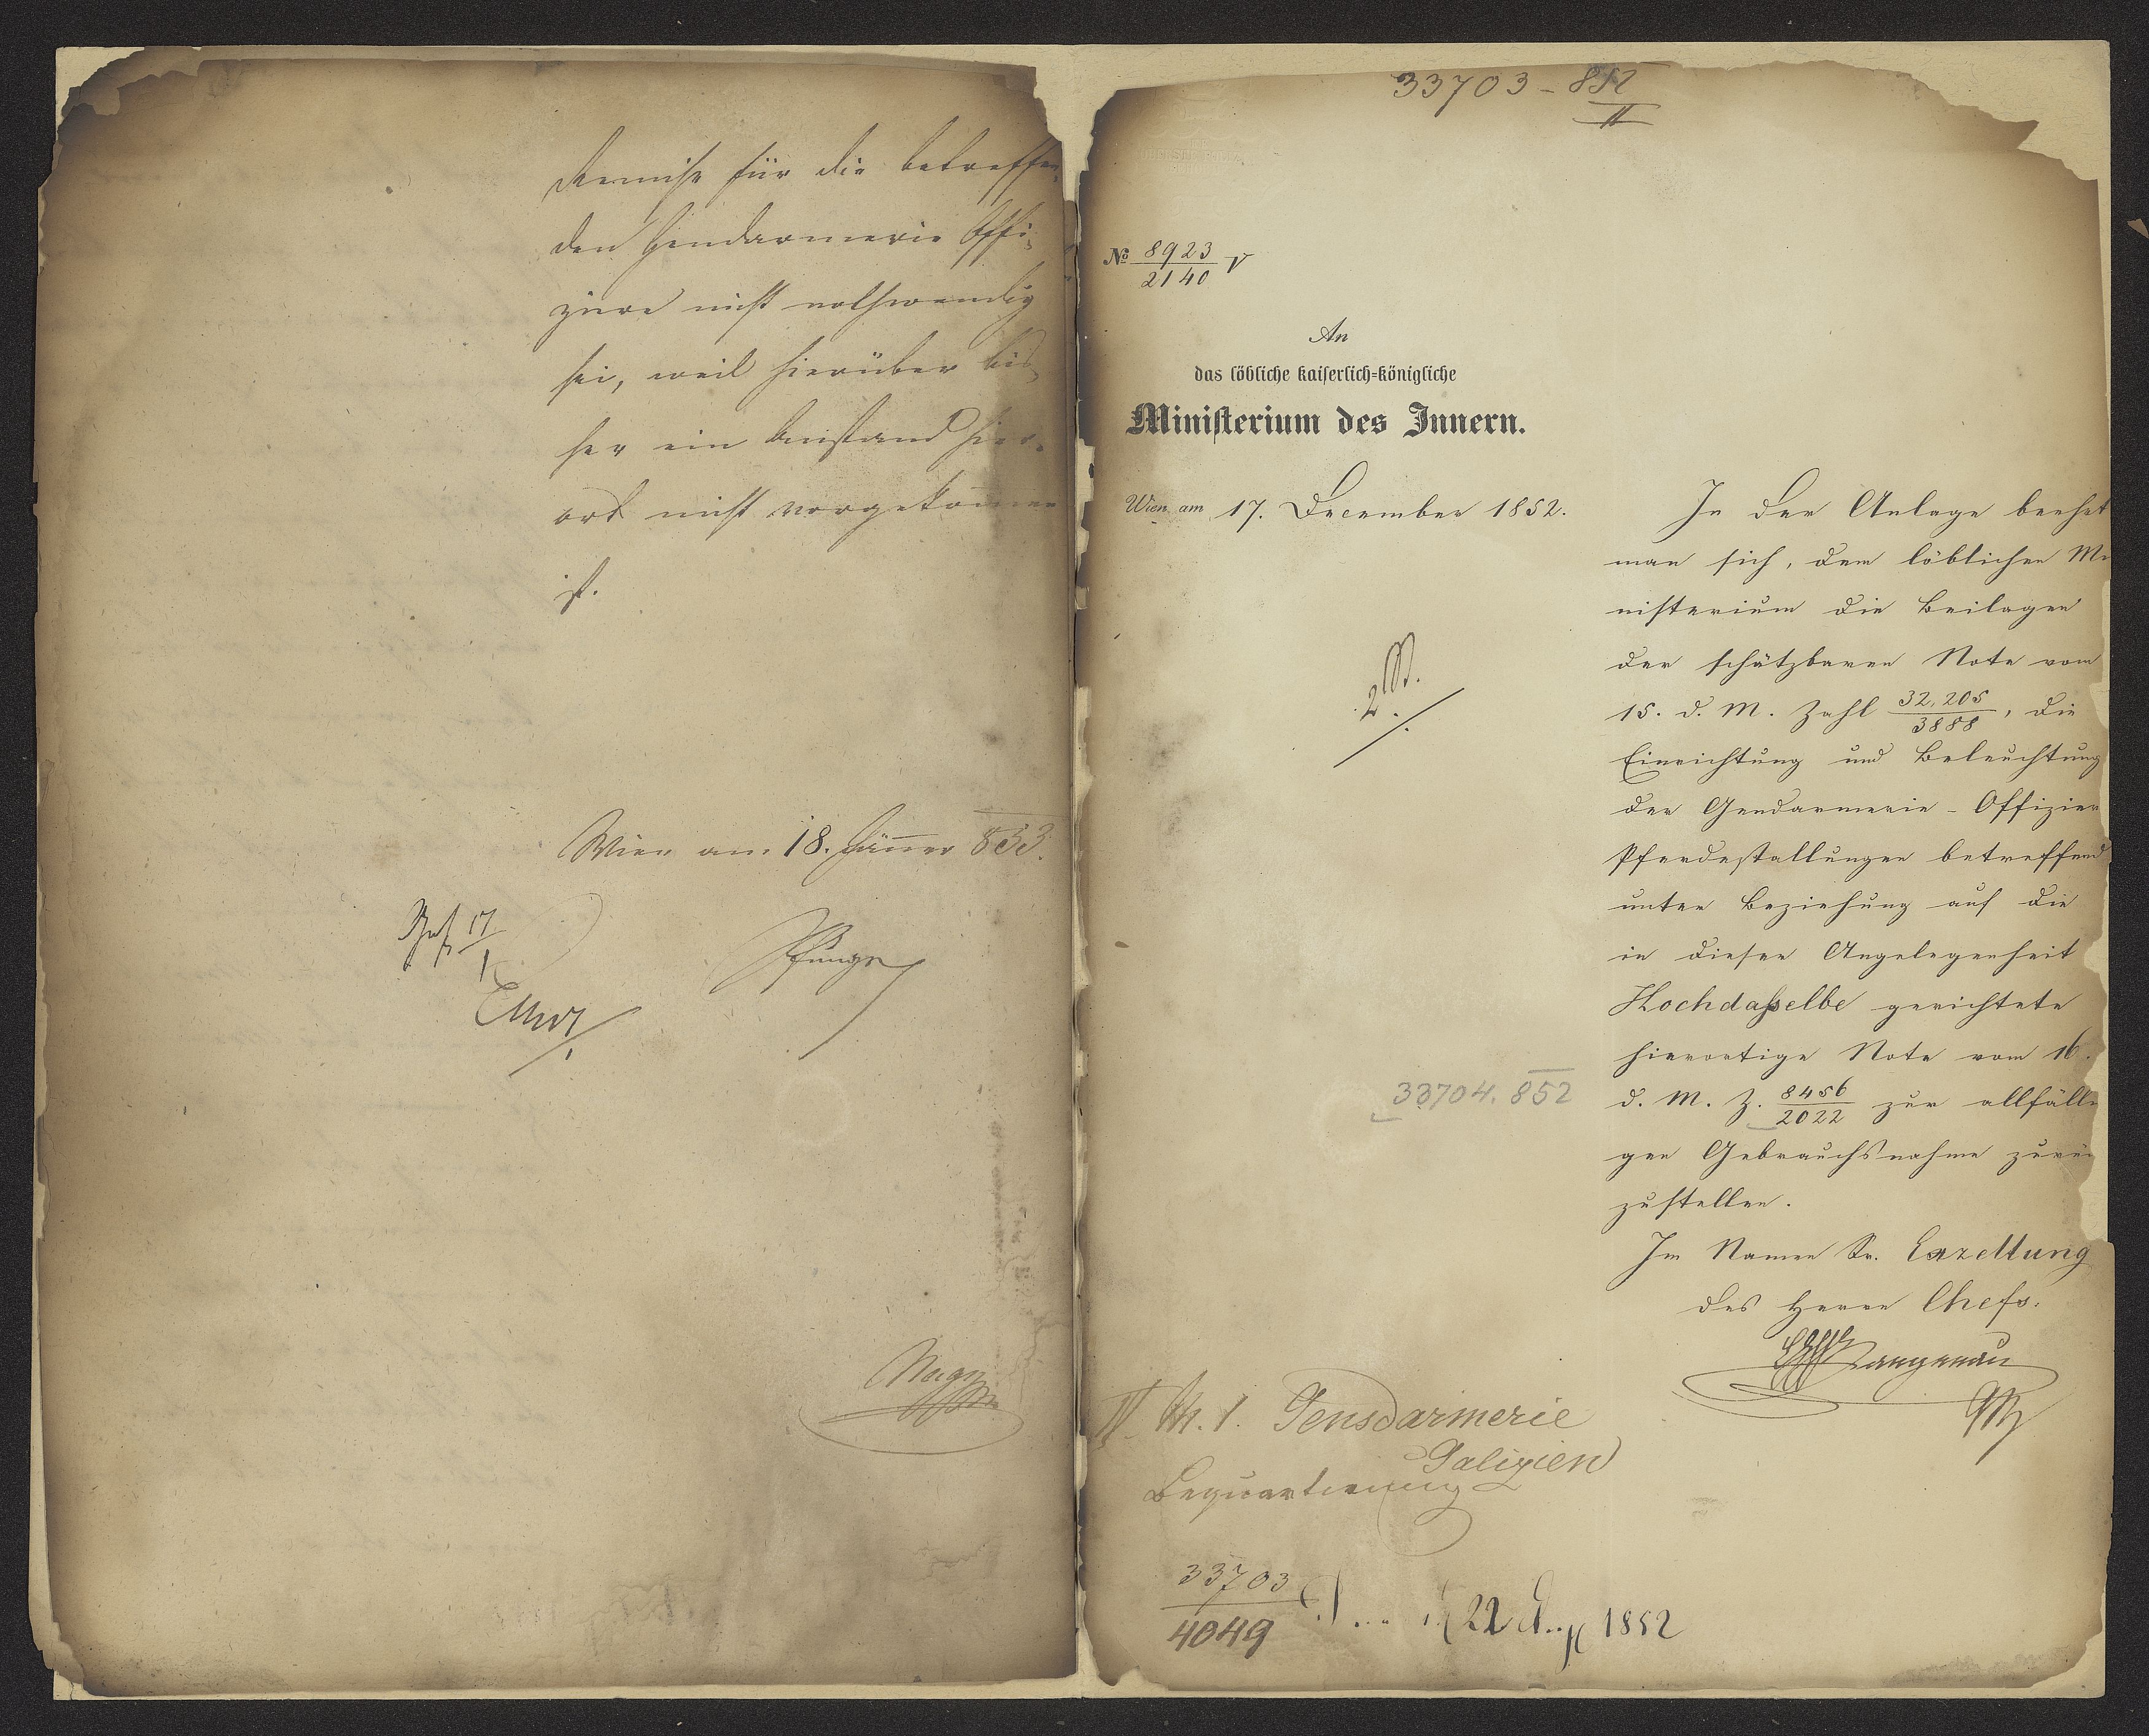 Remise für die betreffen-
den Gendarmerie Offi-
ziere nicht nothwendig
sei, weil hierüber bis-
her ein Anstand hier-
orts nicht vorgekommen
ist.
Wien am 18. Jänner 853.
17/1
33703-852
II
№ 8923/2140 V
An
das löbliche kaiserlich=königliche
Ministerium des Innern.
Wien am 17. December 1852.
In der Anlage beehrt
man sich, dem löblichen Mi
nisterium die Beilagen
der schätzbaren Note vom
15. d. M. Zahl 32,205/3888, die
Einrichtung und Beleuchtung
der Gendarmerie-Offizier
Pferdestallungen betreffend
unter Beziehung auf die
in dieser Angelegenheit
Hochdaßelbe gerichtete
hierortige Note vom 16.
d. M. Z. 8456/2022 zur allfälli
gen Gebrauchsnahme zurü
zustellen.
Im Namen Sr. Exzellenz
des Herrn Chefs.
33704.852
IV. M. 1. Gensdarmerie
Galizien
Bequartierung
33703/4049
22 1852